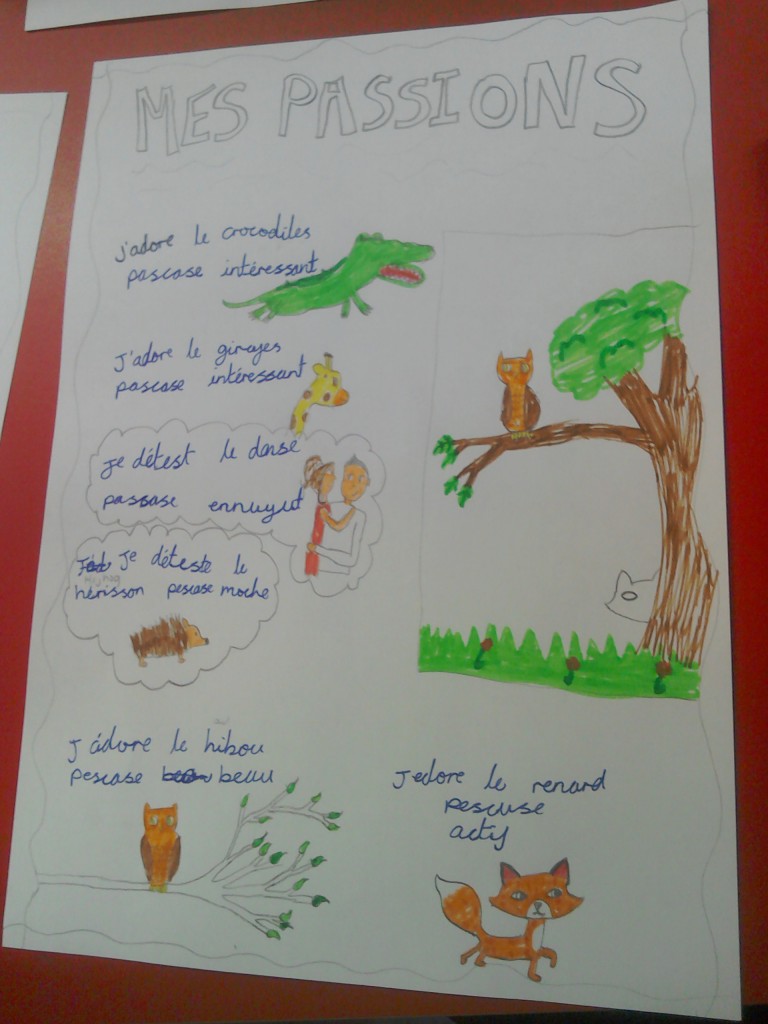 MES PASSIONS
j'adore le crocodiles
pascase intéressant
J'adore le girayes
pascase intéressant
je détest le danse
pascase ennuyut
je déteste le
hérisson pescase moche
J'adore le hibou
pescase beau
J'edore le renard
pescuse
actif